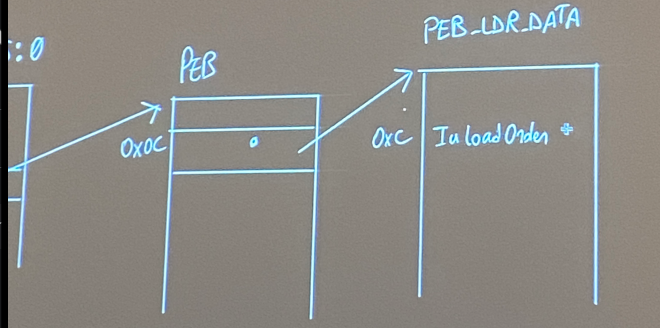 :0
PEB
0x0C
PEB_LDR_DATA
0xC
InLoadOrder *